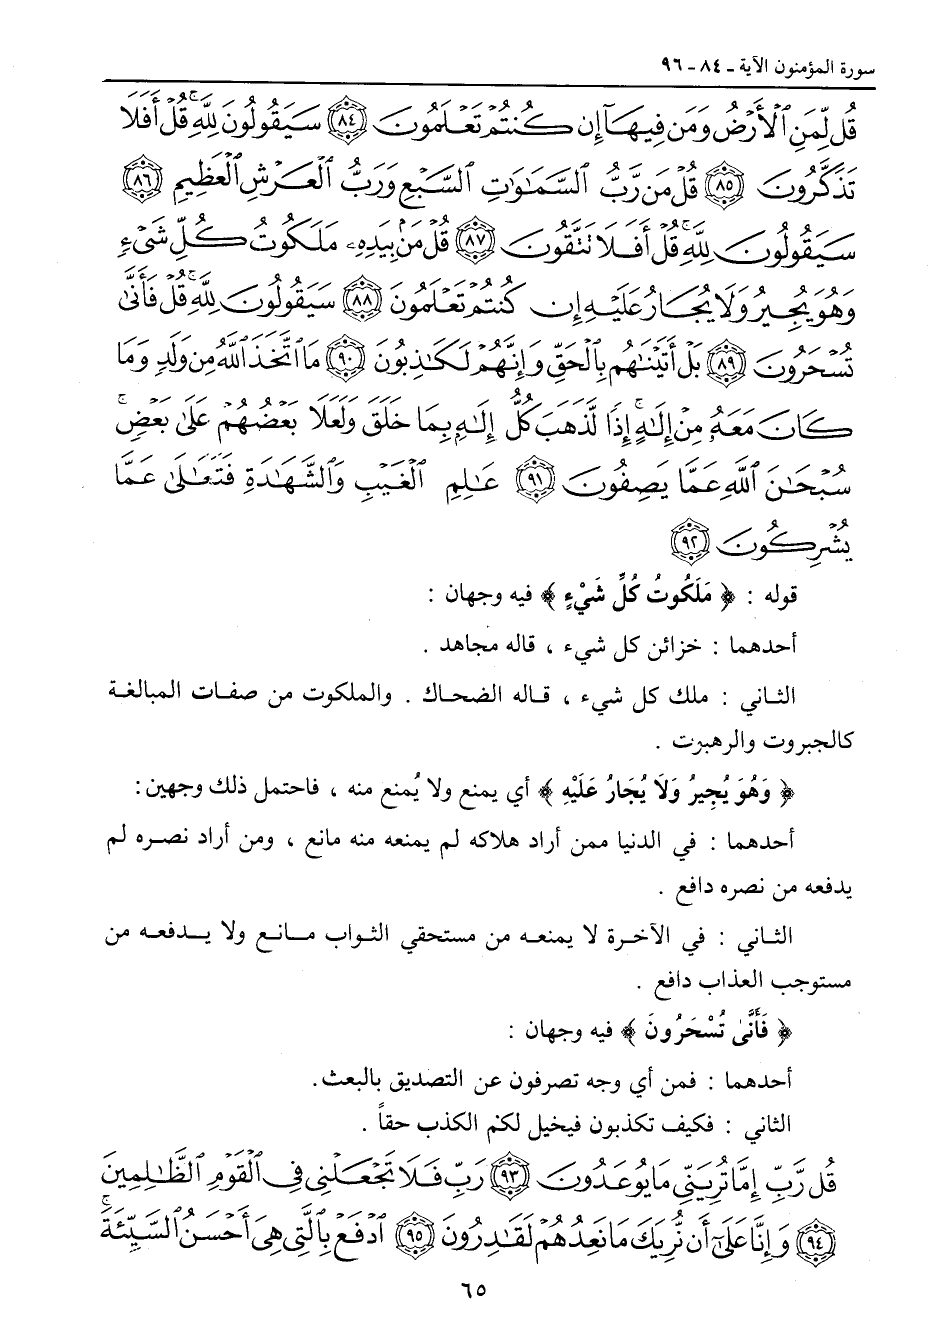 سورة المؤمنون الآية ـ ٨٤ - ٩٦
قُل لِّمَنِ ٱلْأَرْضُ وَمَن فِيهَآ إِن كُنتُمْ تَعْلَمُونَ ٨٤ سَيَقُولُونَ لِلَّهِ ۚ قُلْ أَفَلَا
تَذَكَّرُونَ ٨٥ قُلْ مَن رَّبُّ ٱلسَّمَٰوَٰتِ ٱلسَّبْعِ وَرَبُّ ٱلْعَرْشِ ٱلْعَظِيمِ ٨٦
سَيَقُولُونَ لِلَّهِ ۚ قُلْ أَفَلَا تَتَّقُونَ ٨٧ قُلْ مَنۢ بِيَدِهِۦ مَلَكُوتُ كُلِّ شَىْءٍ
وَهُوَ يُجِيرُ وَلَا يُجَارُ عَلَيْهِ إِن كُنتُمْ تَعْلَمُونَ ٨٨ سَيَقُولُونَ لِلَّهِ ۚ قُلْ فَأَنَّىٰ
تُسْحَرُونَ ٨٩ بَلْ أَتَيْنَٰهُم بِٱلْحَقِّ وَإِنَّهُمْ لَكَٰذِبُونَ ٩٠ مَا ٱتَّخَذَ ٱللَّهُ مِن وَلَدٍ وَمَا
كَانَ مَعَهُۥ مِنْ إِلَٰهٍ ۚ إِذًا لَّذَهَبَ كُلُّ إِلَٰهٍۭ بِمَا خَلَقَ وَلَعَلَا بَعْضُهُمْ عَلَىٰ بَعْضٍ ۚ
سُبْحَٰنَ ٱللَّهِ عَمَّا يَصِفُونَ ٩١ عَٰلِمِ ٱلْغَيْبِ وَٱلشَّهَٰدَةِ فَتَعَٰلَىٰ عَمَّا
يُشْرِكُونَ ٩٢
قوله : ﴿ مَلَكُوتُ كُلِّ شَيْءٍ ﴾ فيه وجهان :
أحدهما : خزائن كل شيء ، قاله مجاهد .
الثاني : ملك كل شيء ، قاله الضحاك . والملكوت من صفات المبالغة
كالجبروت والرهبرت .
﴿ وَهُوَ يُجِيرُ وَلَا يُجَارُ عَلَيْهِ ﴾ أي يمنع ولا يُمنع منه ، فاحتمل ذلك وجهين :
أحدهما : في الدنيا ممن أراد هلاكه لم يمنعه منه مانع ، ومن أراد نصره لم
يدفعه من نصره دافع .
الثاني : في الآخرة لا يمنعه من مستحقي الثواب مانع ولا يدفعه من
مستوجب العذاب دافع .
﴿ فَأَنَّىٰ تُسْحَرُونَ ﴾ فيه وجهان :
أحدهما : فمن أي وجه تصرفون عن التصديق بالبعث.
الثاني : فكيف تكذبون فيخيل لكم الكذب حقاً .
قُل رَّبِّ إِمَّا تُرِيَنِّى مَا يُوعَدُونَ ٩٣ رَبِّ فَلَا تَجْعَلْنِى فِى ٱلْقَوْمِ ٱلظَّٰلِمِينَ
٩٤ وَإِنَّا عَلَىٰٓ أَن نُّرِيَكَ مَا نَعِدُهُمْ لَقَٰدِرُونَ ٩٥ ٱدْفَعْ بِٱلَّتِى هِىَ أَحْسَنُ ٱلسَّيِّئَةَ ۚ
٦٥